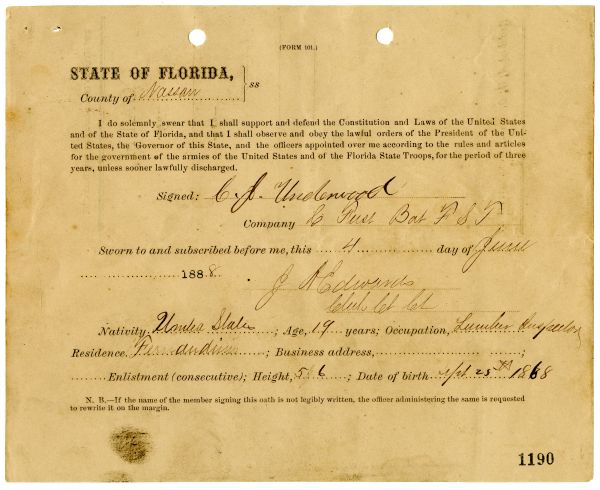 (FORM 101.)
STATE OF FLORIDA,
County of Nassau } ss
I do solemnly swear that I shall support and defend the Constitution and Laws of the United States
and of the State of Florida, and that I shall observe and obey the lawful orders of the President of the Uni-
ted States, the Governor of this State, and the officers appointed over me according to the rules and articles
for the government of the armies of the United States and of the Florida State Troops, for the period of three
years, unless sooner lawfully discharged.
Signed: C. J. Underwood
Company C First Bat F S T
Sworn to and subscribed before me, this 4 day of June
1888.
J A Edwards
Clerk Ct Ct
Nativity, United States; Age, 19 years; Occupation, Lumber Inspector
Residence, Fernandina; Business address,
Enlistment (consecutive); Height, 5 6; Date of birth Sept 25th 1868
N. B.—If the name of the member signing this oath is not legibly written, the officer administering the same is requested
to rewrite it on the margin.
1190